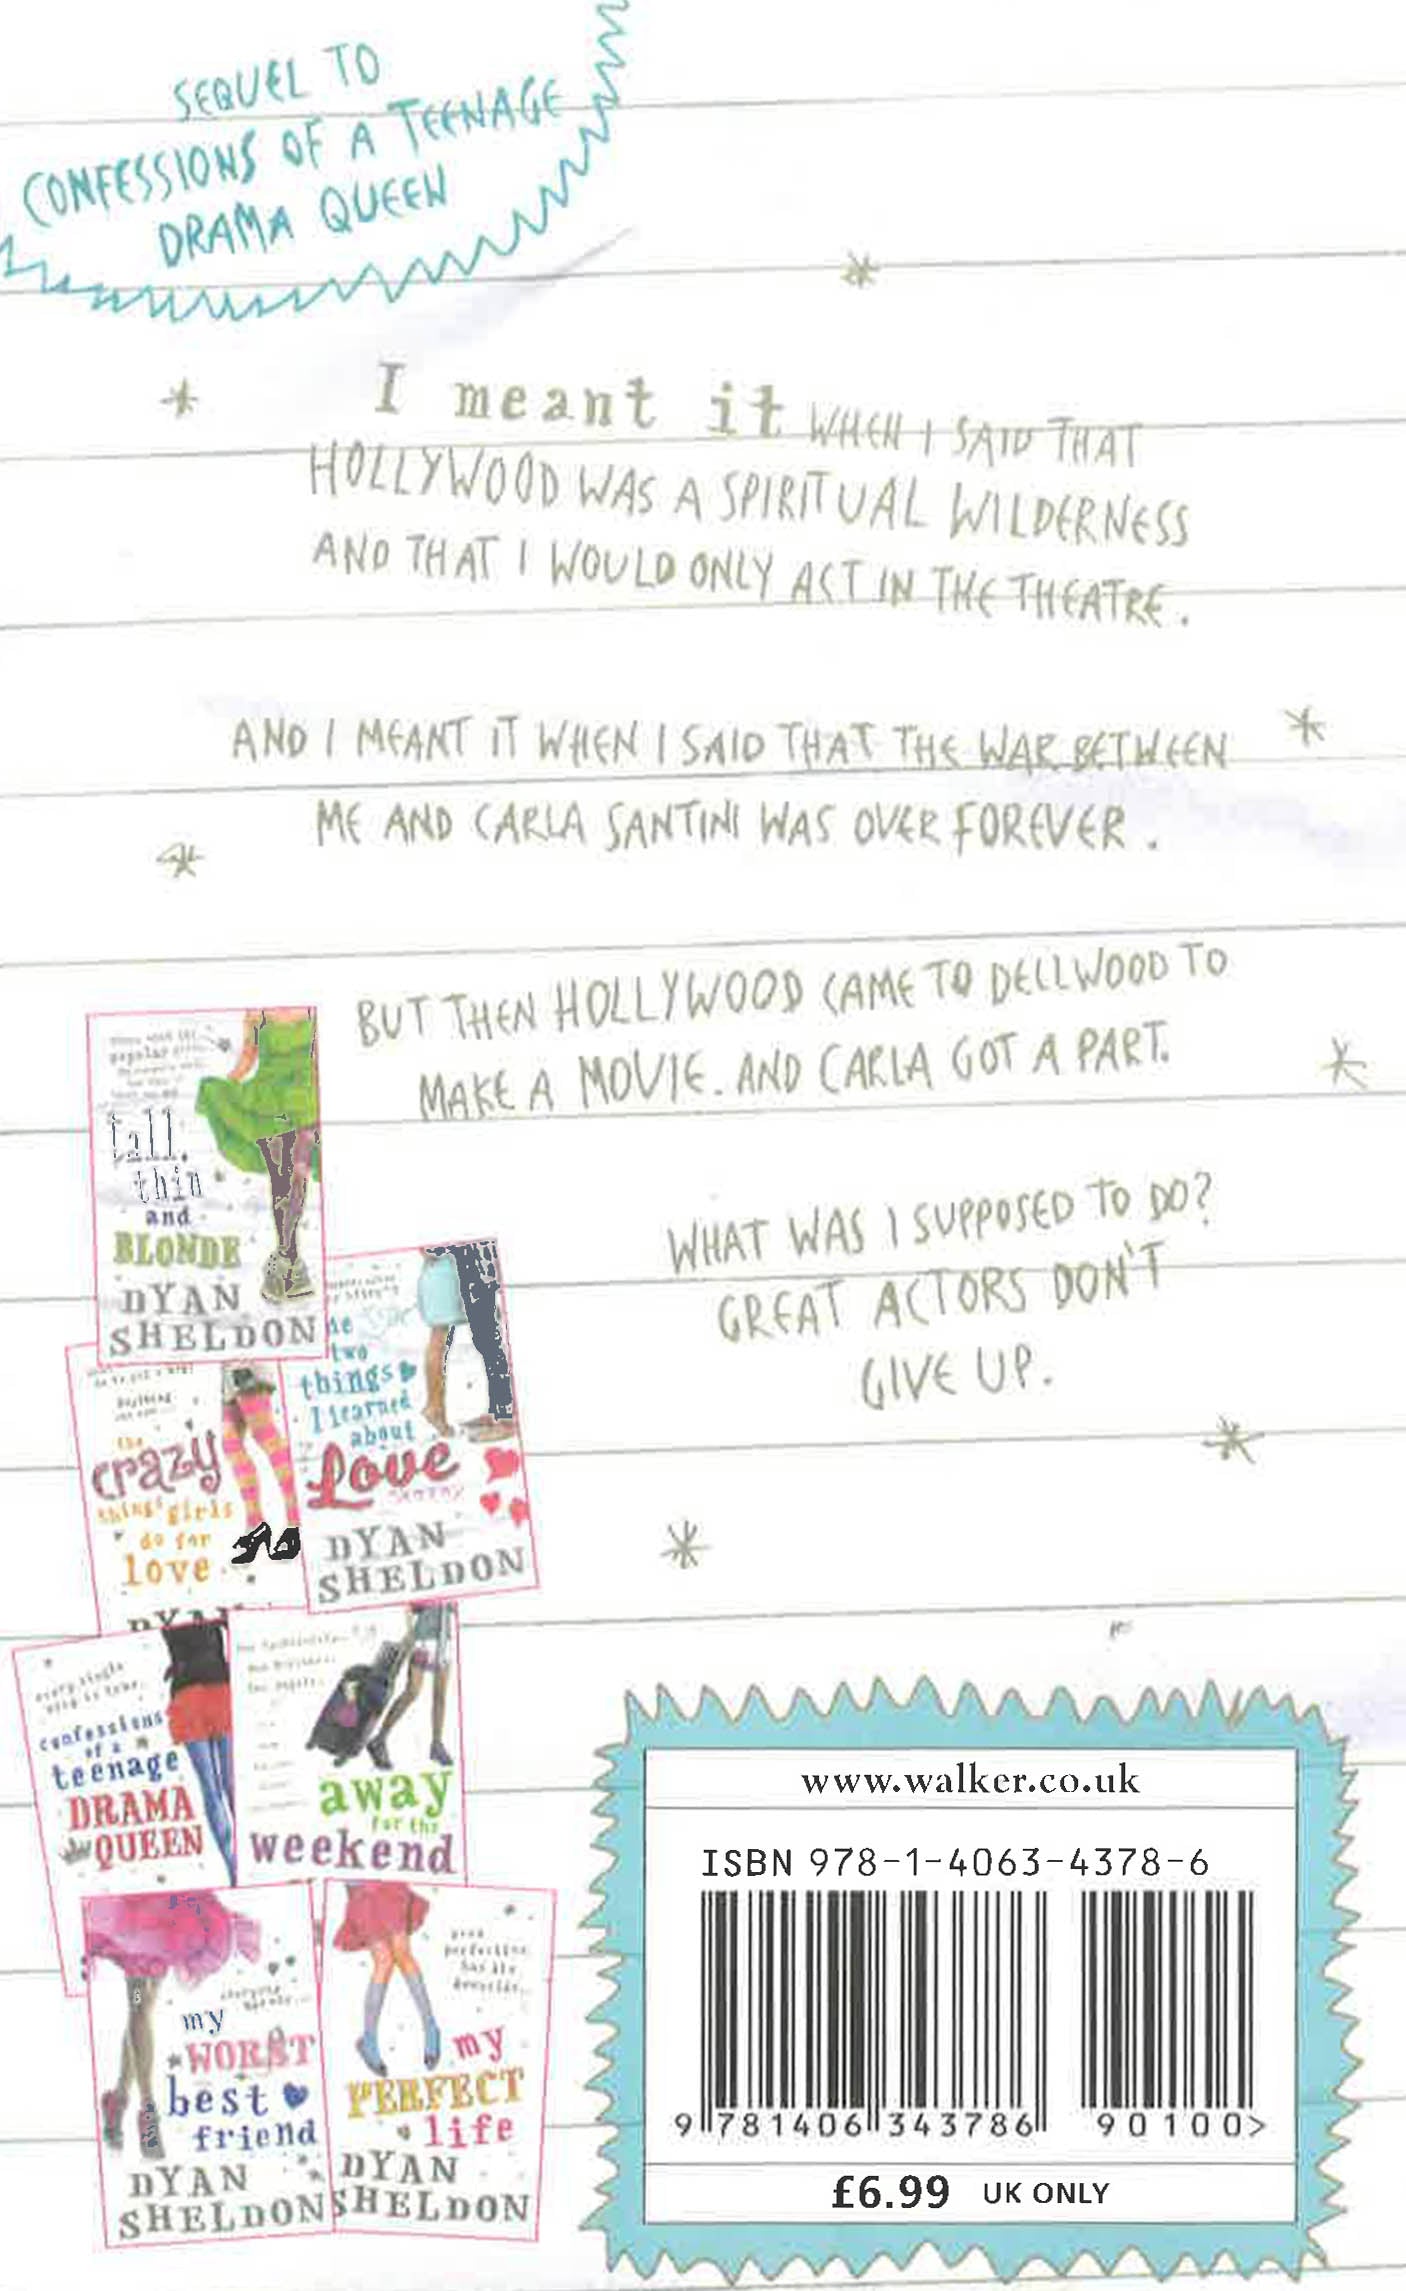 SEQUEL TO
CONFESSIONS OF A TEENAGE
DRAMA QUEEN
I meant it WHEN I SAID THAT
HOLLYWOOD WAS A SPIRITUAL WILDERNESS
AND THAT I WOULD ONLY ACT IN THE THEATRE.
AND I MEANT IT WHEN I SAID THAT THE WAR BETWEEN
ME AND CARLA SANTINI WAS OVER FOREVER.
BUT THEN HOLLYWOOD CAME TO DELLWOOD TO
MAKE A MOVIE. AND CARLA GOT A PART.
WHAT WAS I SUPPOSED TO DO?
GREAT ACTORS DON'T
GIVE UP.
popular
tall,
thin
and
BLONDE
DYAN
SHELDON
two
things
I learned
about
Love
DYAN
SHELDON
the
crazy
things girls
do for
love
DYAN
every single
confessions
of a
teenage
DRAMA
QUEEN
away
for the
weekend
my
WORST
best
friend
DYAN
SHELDON
my
PERFECT
life
DYAN
SHELDON
www.walker.co.uk
ISBN 978-1-4063-4378-6
9 781406 343786
90100>
£6.99 UK ONLY